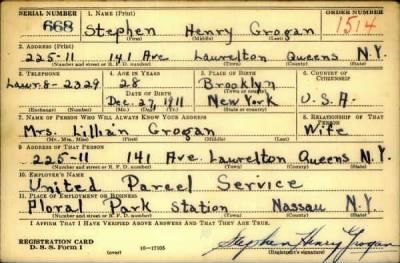 SERIAL NUMBER 1. NAME (Print) ORDER NUMBER
668 Stephen Henry Grogan 1514
(First) (Middle) (Last)
2. ADDRESS (Print)
225-11 141 Ave Laurelton Queens N.Y.
(Number and street or R. F. D. number) (Town) (County) (State)
3. TELEPHONE 4. AGE IN YEARS 5. PLACE OF BIRTH 6. COUNTRY OF CITIZENSHIP
Laur. 8-2329 28 Brooklyn
DATE OF BIRTH (Town or county)
Dec. 27, 1911 New York U.S.A.
(Exchange) (Number) (Mo.) (Day) (Yr.) (State or country)
7. NAME OF PERSON WHO WILL ALWAYS KNOW YOUR ADDRESS 8. RELATIONSHIP OF THAT PERSON
Mrs. Lillian Grogan Wife
(Mr., Mrs., Miss) (First) (Middle) (Last)
9. ADDRESS OF THAT PERSON
225-11 141 Ave. Laurelton Queens N.Y.
(Number and street or R. F. D. number) (Town) (County) (State)
10. EMPLOYER'S NAME
United Parcel Service
11. PLACE OF EMPLOYMENT OR BUSINESS
Floral Park Station Nassau N.Y.
(Number and street or R. F. D. number) (Town) (County) (State)
I AFFIRM THAT I HAVE VERIFIED ABOVE ANSWERS AND THAT THEY ARE TRUE.
REGISTRATION CARD
D. S. S. Form 1 (over) 16-17105 Stephen Henry Grogan
(Registrant's signature)